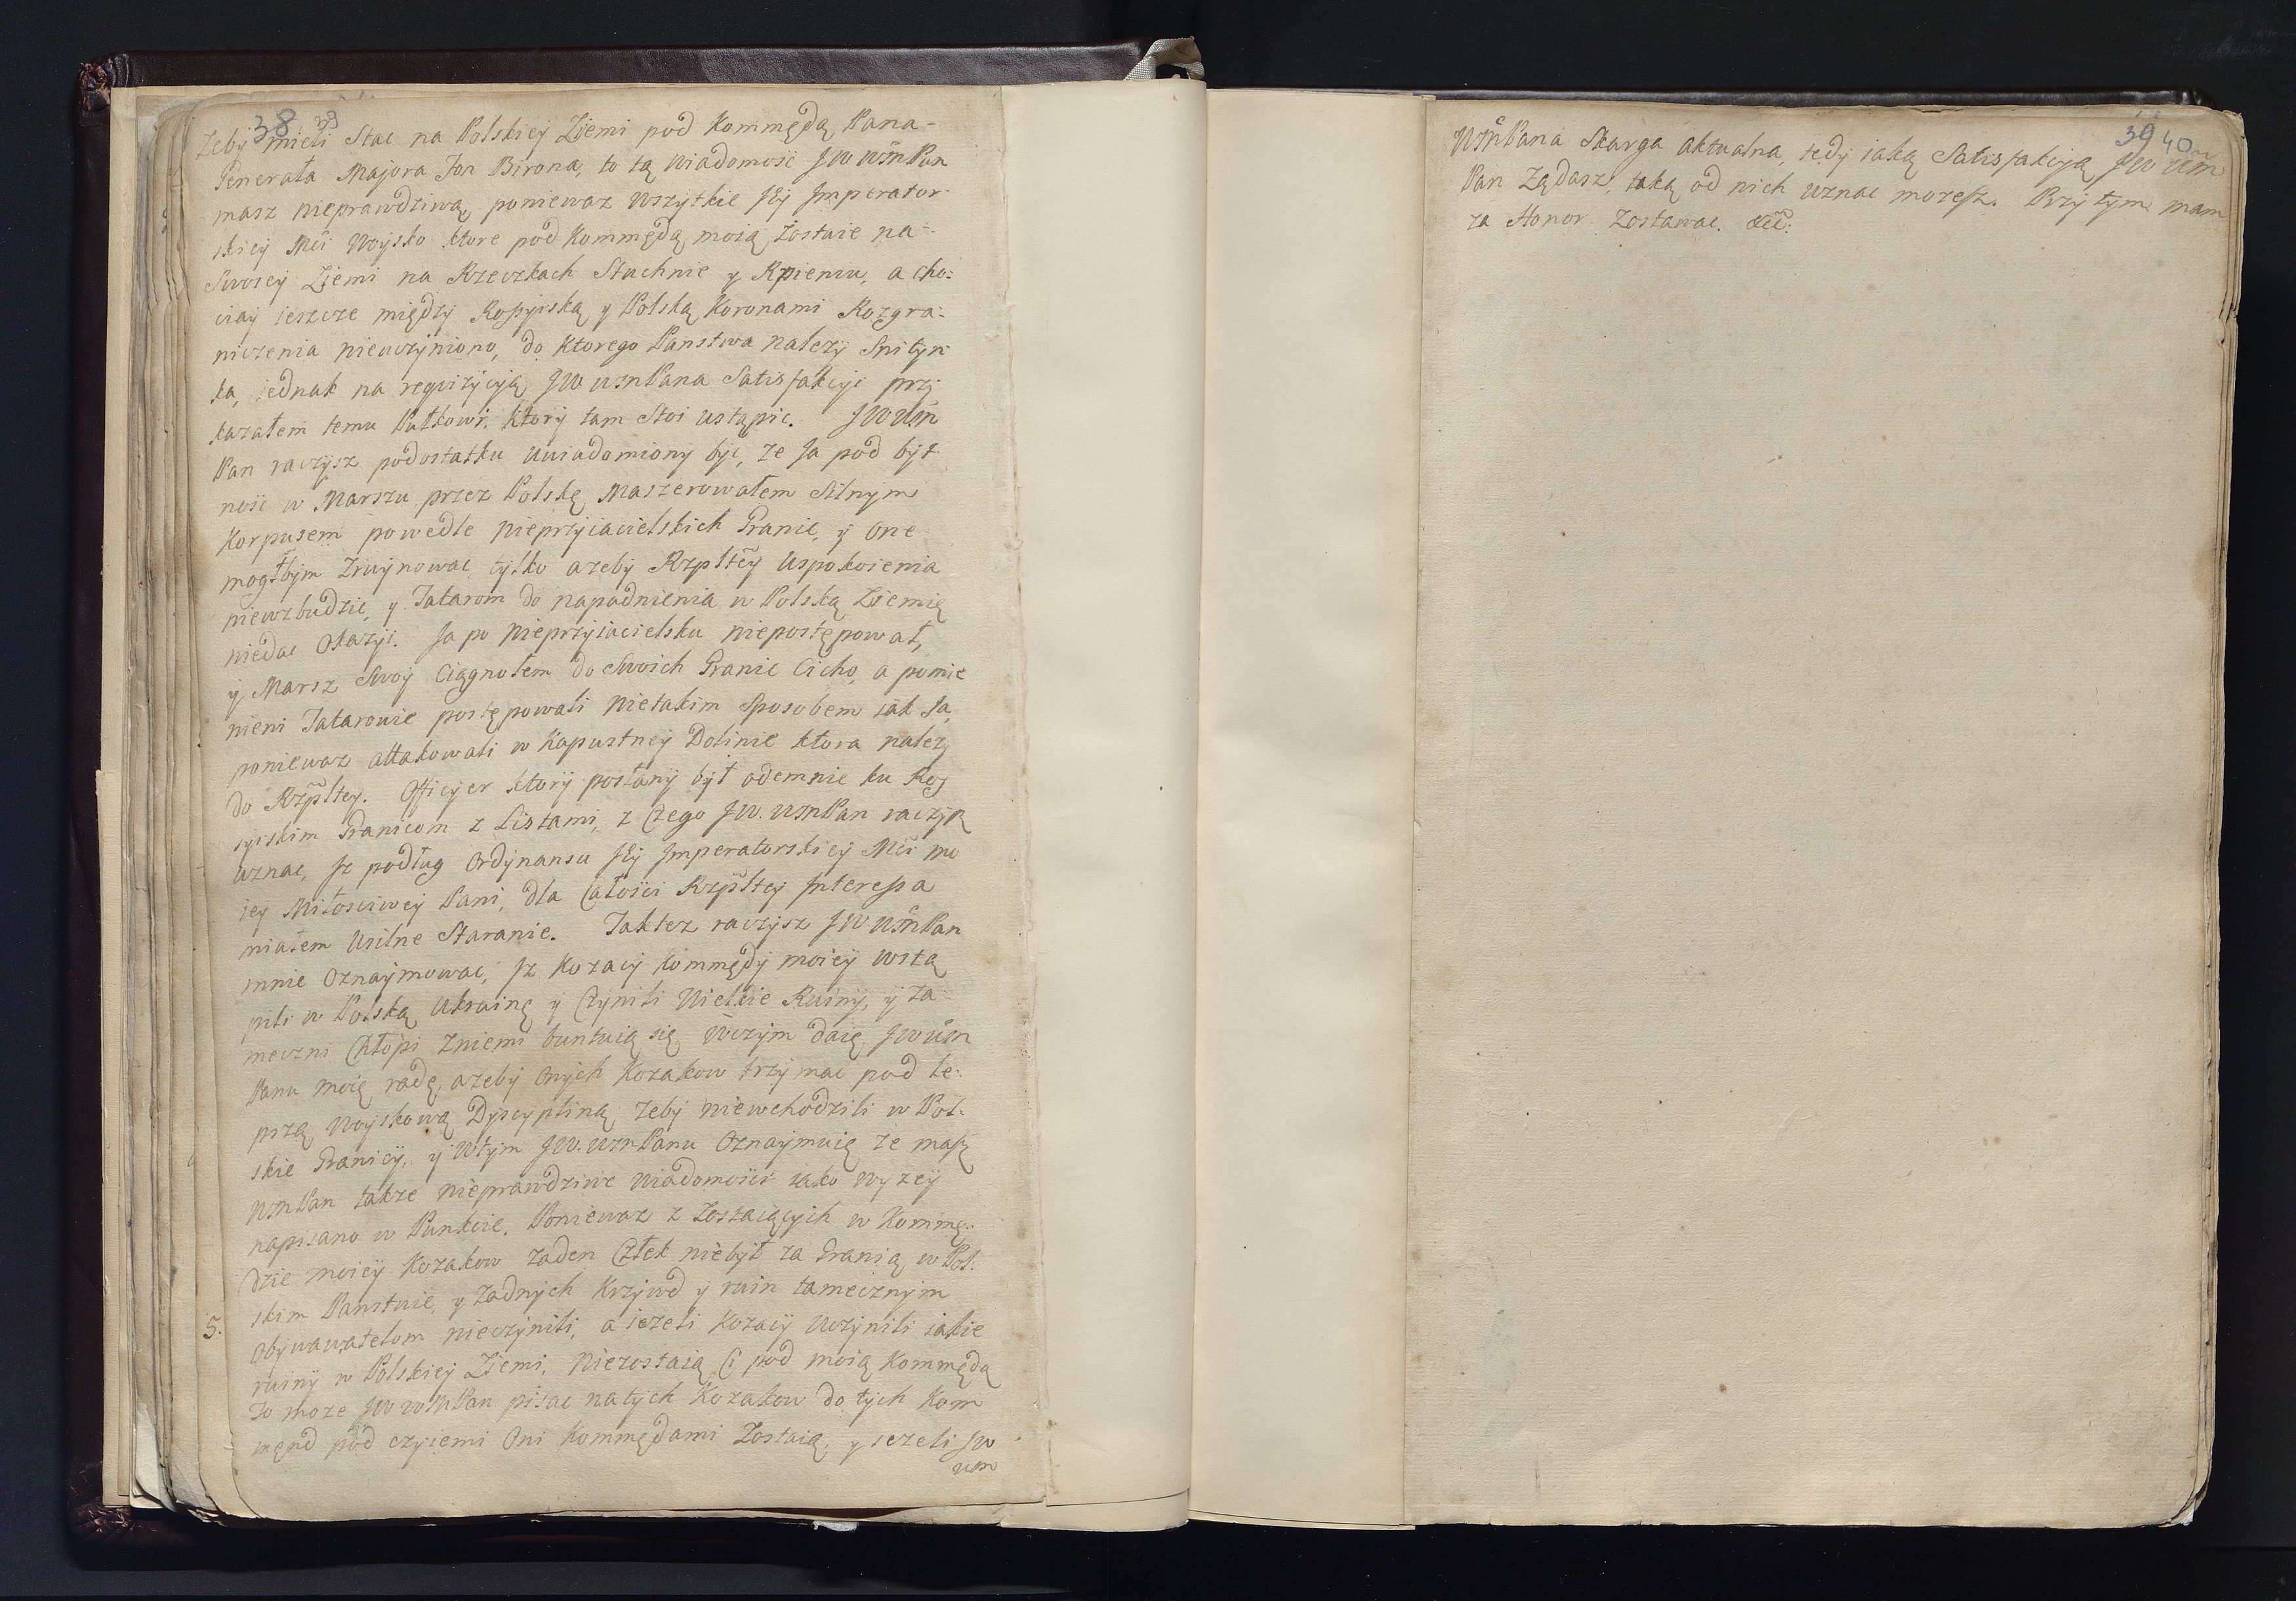 38 39
Zeby mieli Stac na Polskiey Ziemi pod Kommędą Pana-
Generała Majora Fon Birona, to tą Wiadomość JW WmPan
masz nieprawdziwą, poniewaz Wszytkie Jey Jmperator-
skiey Mci Woysko ktore pod Kommędą moią Zostaie na-
Swoiey Ziemi na Rzeczkach Stuchnie y Kpieniu, a cho:
ciay ieszcze między Rossyiską y Polską Koronami Rozgra-
niczenia nieuczyniono, do Ktorego Panstwa nalezy Snityn
ka, iednak na reqvizycyią JW WmPana Satisfakcyi przy
kazałem temu Pułkowi, ktory tam Stoi ustąpic. JW Wm
Pan raczysz podostatku Uwiadomiony byc, ze Ja pod byt
nosc w Marszu przez Polskę Maszerowałem Silnym
Korpusem powedle nieprzyiacielskich Granic, y One
mogłbym Zruynowac, tylko azeby Rzpltey Uspokoienia
niewzbudzic, y Tatarom do napadnienia w Polską Ziemię
niedac Okazyi. Ja po nieprzyiacielsku niepostępował,
y Marsz Swoy Ciągnołem do Swoich Granic Cicho, a pomie
nieni Tatarowie postępowali nietakim Sposobem iak Ja,
poniewaz attakowali w Kapustney Dolinie ktora nalezy
do Rzpltey. Officyer ktory posłany był odemnie ku Ros
syiskim Granicom z Listami, z Czego JW. WmPan raczysz
Uznac, Jz podług Ordynansu Jey Jmperatorskiey Mci mo
iey Miłosciwey Pani, dla Całosci Rzpltey Jnteressa
miałem Usilne Staranie. Taktez raczysz JW WmPan
mnie Oznaymowac, Jz Kozacy Kommędy moiey Wstą
pili w Polską Ukrainę y Czynili Wielkie Ruiny, y ta-
meczni Chłopi Zniemi buntuią się, Wczym daię JW Wm
Panu moię radę, azeby Onych Kozakow trzymac pod le-
pszą Woyskową Dyscypliną, Zeby niewchodzili w Pol-
skie Granicy, y Wtym JW. WmPanu Oznaymuię ze masz
WmPan takze nieprawdziwe Wiadomosci iako Wyzey
napisano w Punkcie. Poniewaz z Zostaiących w Kommę-
dzie moiey Kozakow zaden Człek niebył za Granią, w Pol-
skim Panstwie, y Zadnych Krzywd y ruin tamecznym
5. Obywawatelom nieczynili, a iezeli Kozacy Uczynili iakie
ruiny w Polskiey Ziemi, niezostaią Ci pod moią Kommędą
To moze JW WmPan pisac na tych Kozakow do tych Kom
mend pod czyiemi Oni Kommędami Zostaią, y iezeli JW
Wm
39 40
WmPana Skarga aktualna, tedy iaką Satisfakcyią JW Wm
Pan Ządasz, taką od nich uznac mozesz. Przy tym mam
za Honor Zostawac. &c: